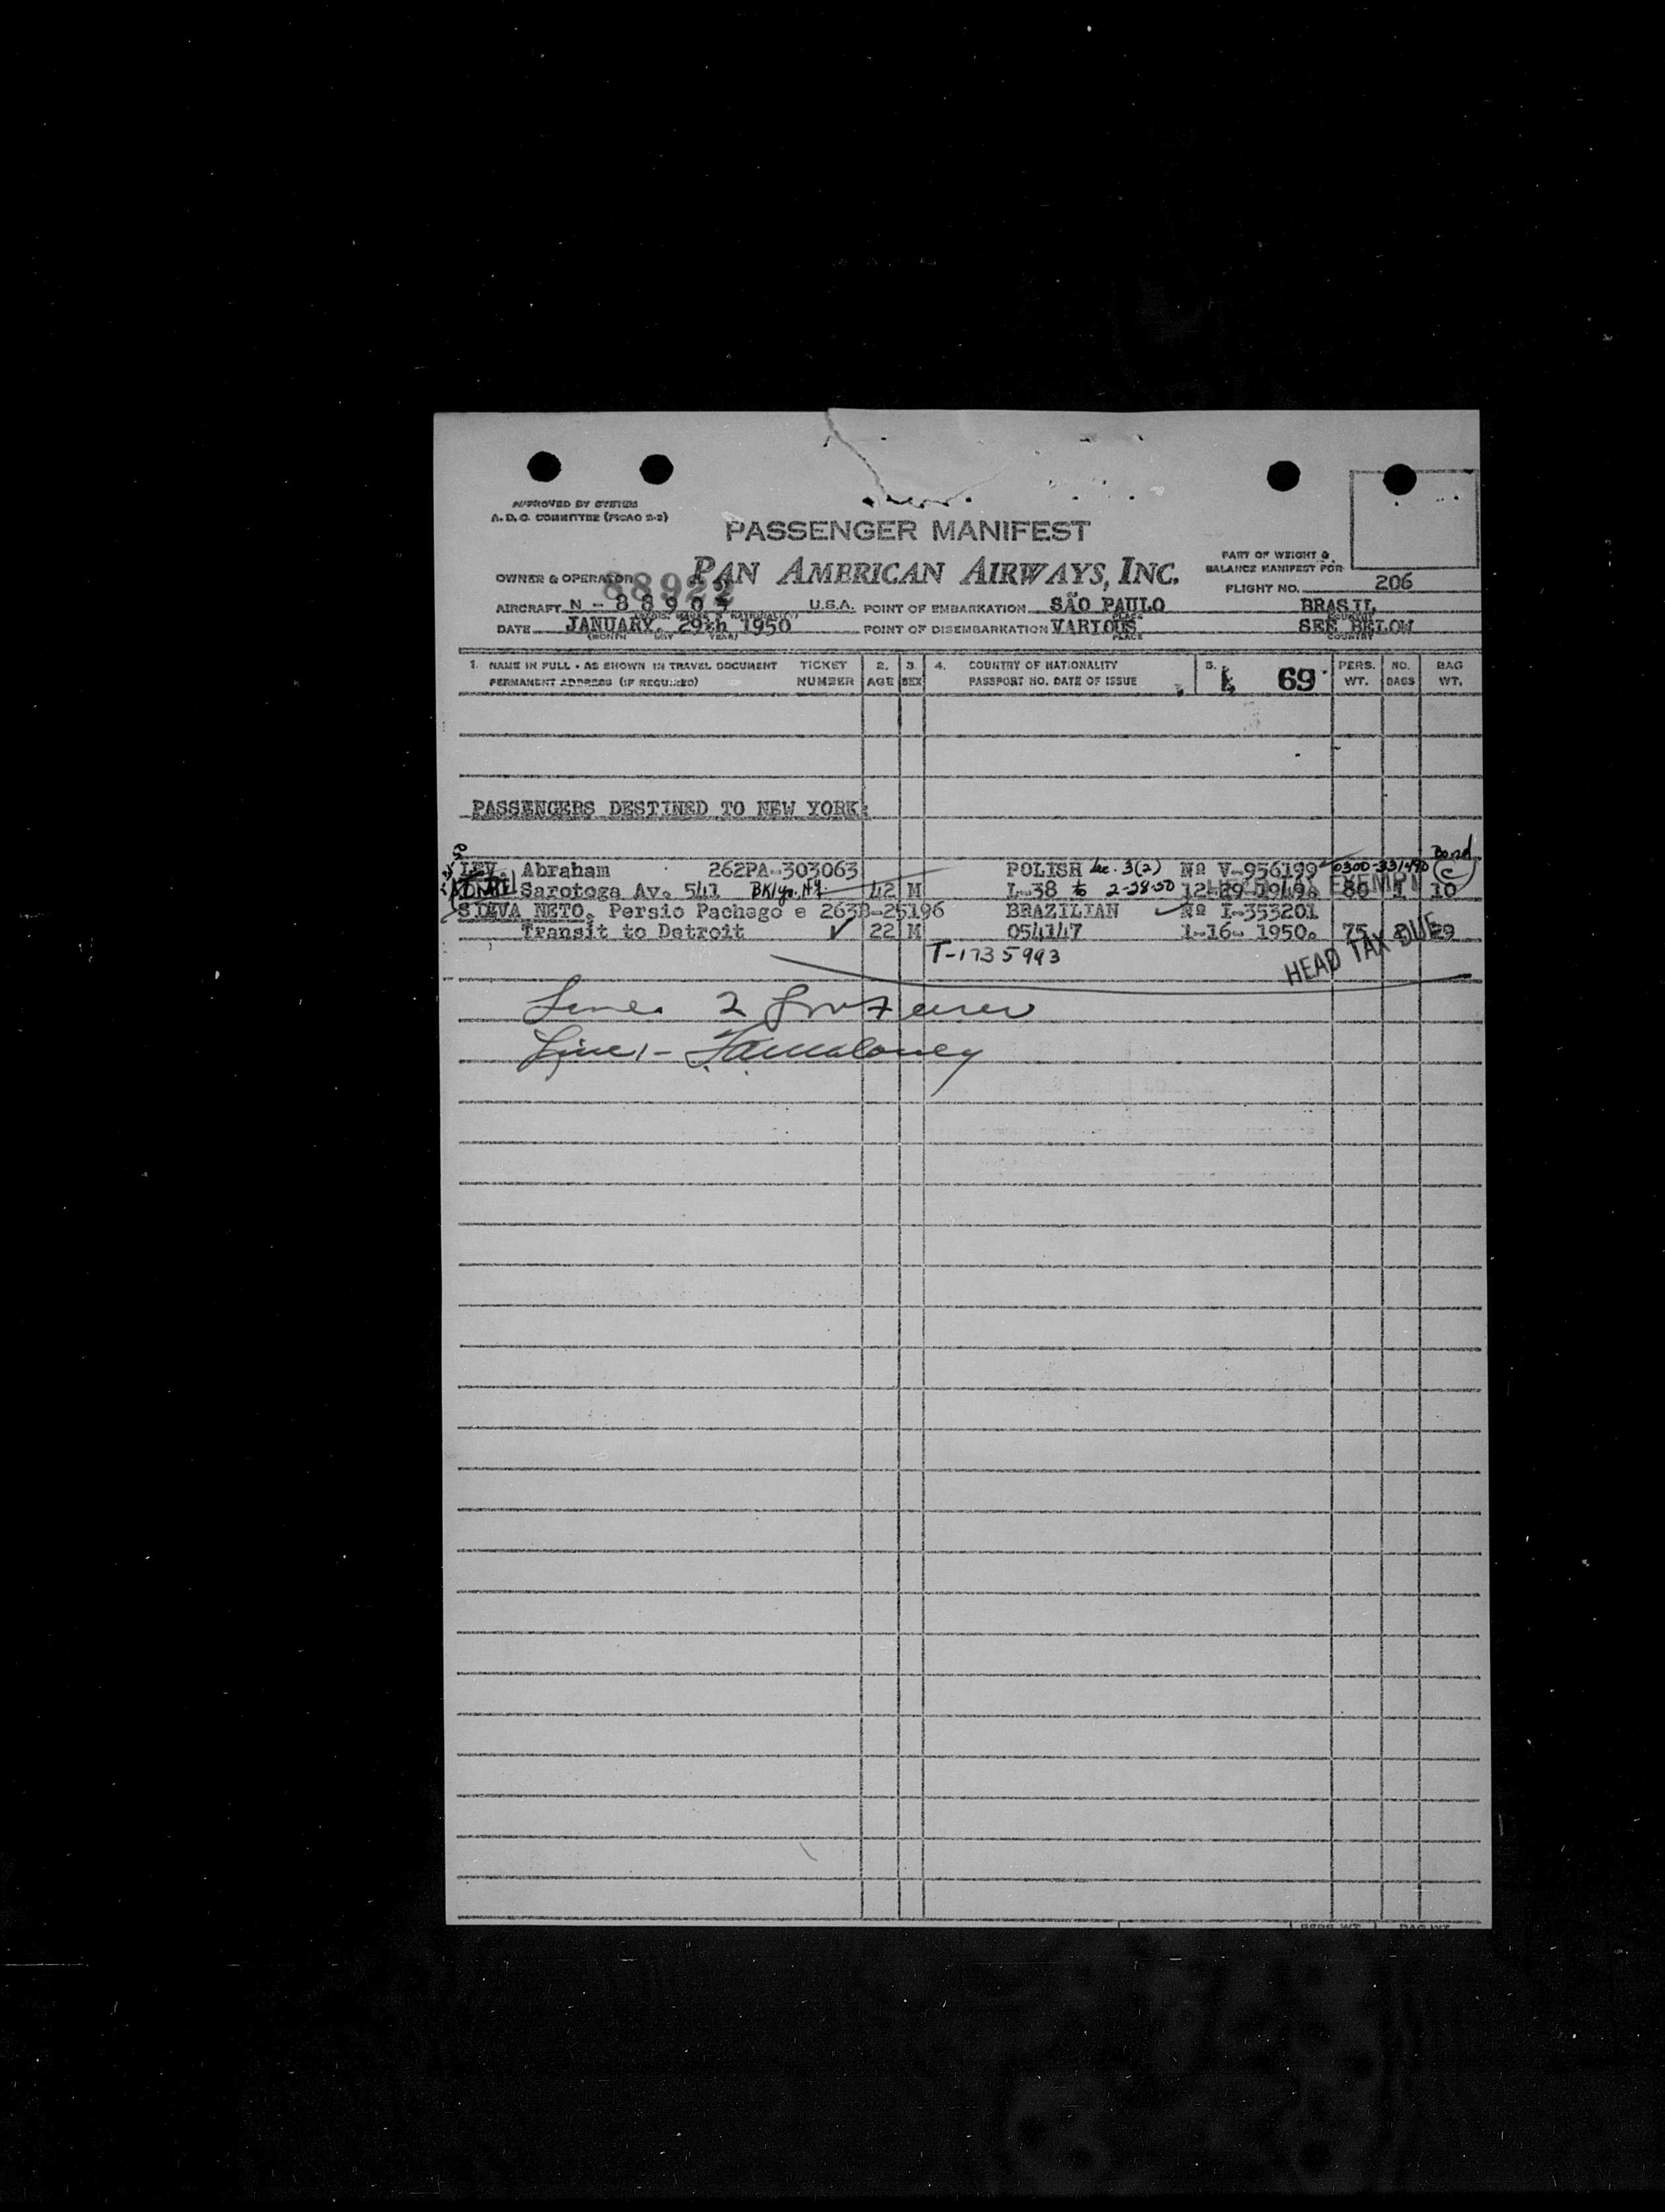 APPROVED BY SYSTEM
A. D. C. COMMITTEE (PICAO 2-2)
PASSENGER MANIFEST
PART OF WEIGHT &
BALANCE MANIFEST FOR
OWNER & OPERATOR PAN AMERICAN AIRWAYS, INC.
88922
FLIGHT NO. 206
AIRCRAFT N - 8 8 9 0 U.S.A. POINT OF EMBARKATION SÃO PAULO BRASIL
DATE JANUARY, 29th 1950 POINT OF DISEMBARKATION VARIOUS SEE BELOW
(MONTH DAY YEAR) PLACE COUNTRY
1. NAME IN FULL - AS SHOWN IN TRAVEL DOCUMENT TICKET 2. 3. 4. COUNTRY OF NATIONALITY 5. 69 PERS. NO. BAG
PERMANENT ADDRESS (IF REQUIRED) NUMBER AGE SEX PASSPORT NO. DATE OF ISSUE WT. BAGS WT.
PASSENGERS DESTINED TO NEW YORK:
Bond
LEV, Abraham 262PA-303063 POLISH Sec. 3(2) Nº V-956199 0300-331490 C
Sarotoga Av. 541 Bklyn. N.Y. 42 M L-38 to 2-28-50 12-29-1949. EXEMPT 86 1 10
SILVA NETO, Persio Pachego e 263B-25196 BRAZILIAN Nº I-353201
Transit to Detroit ✓ 22 M 054147 1-16- 1950. 75 29
T-1735993 HEAD TAX DUE
Line 2
Line 1 -